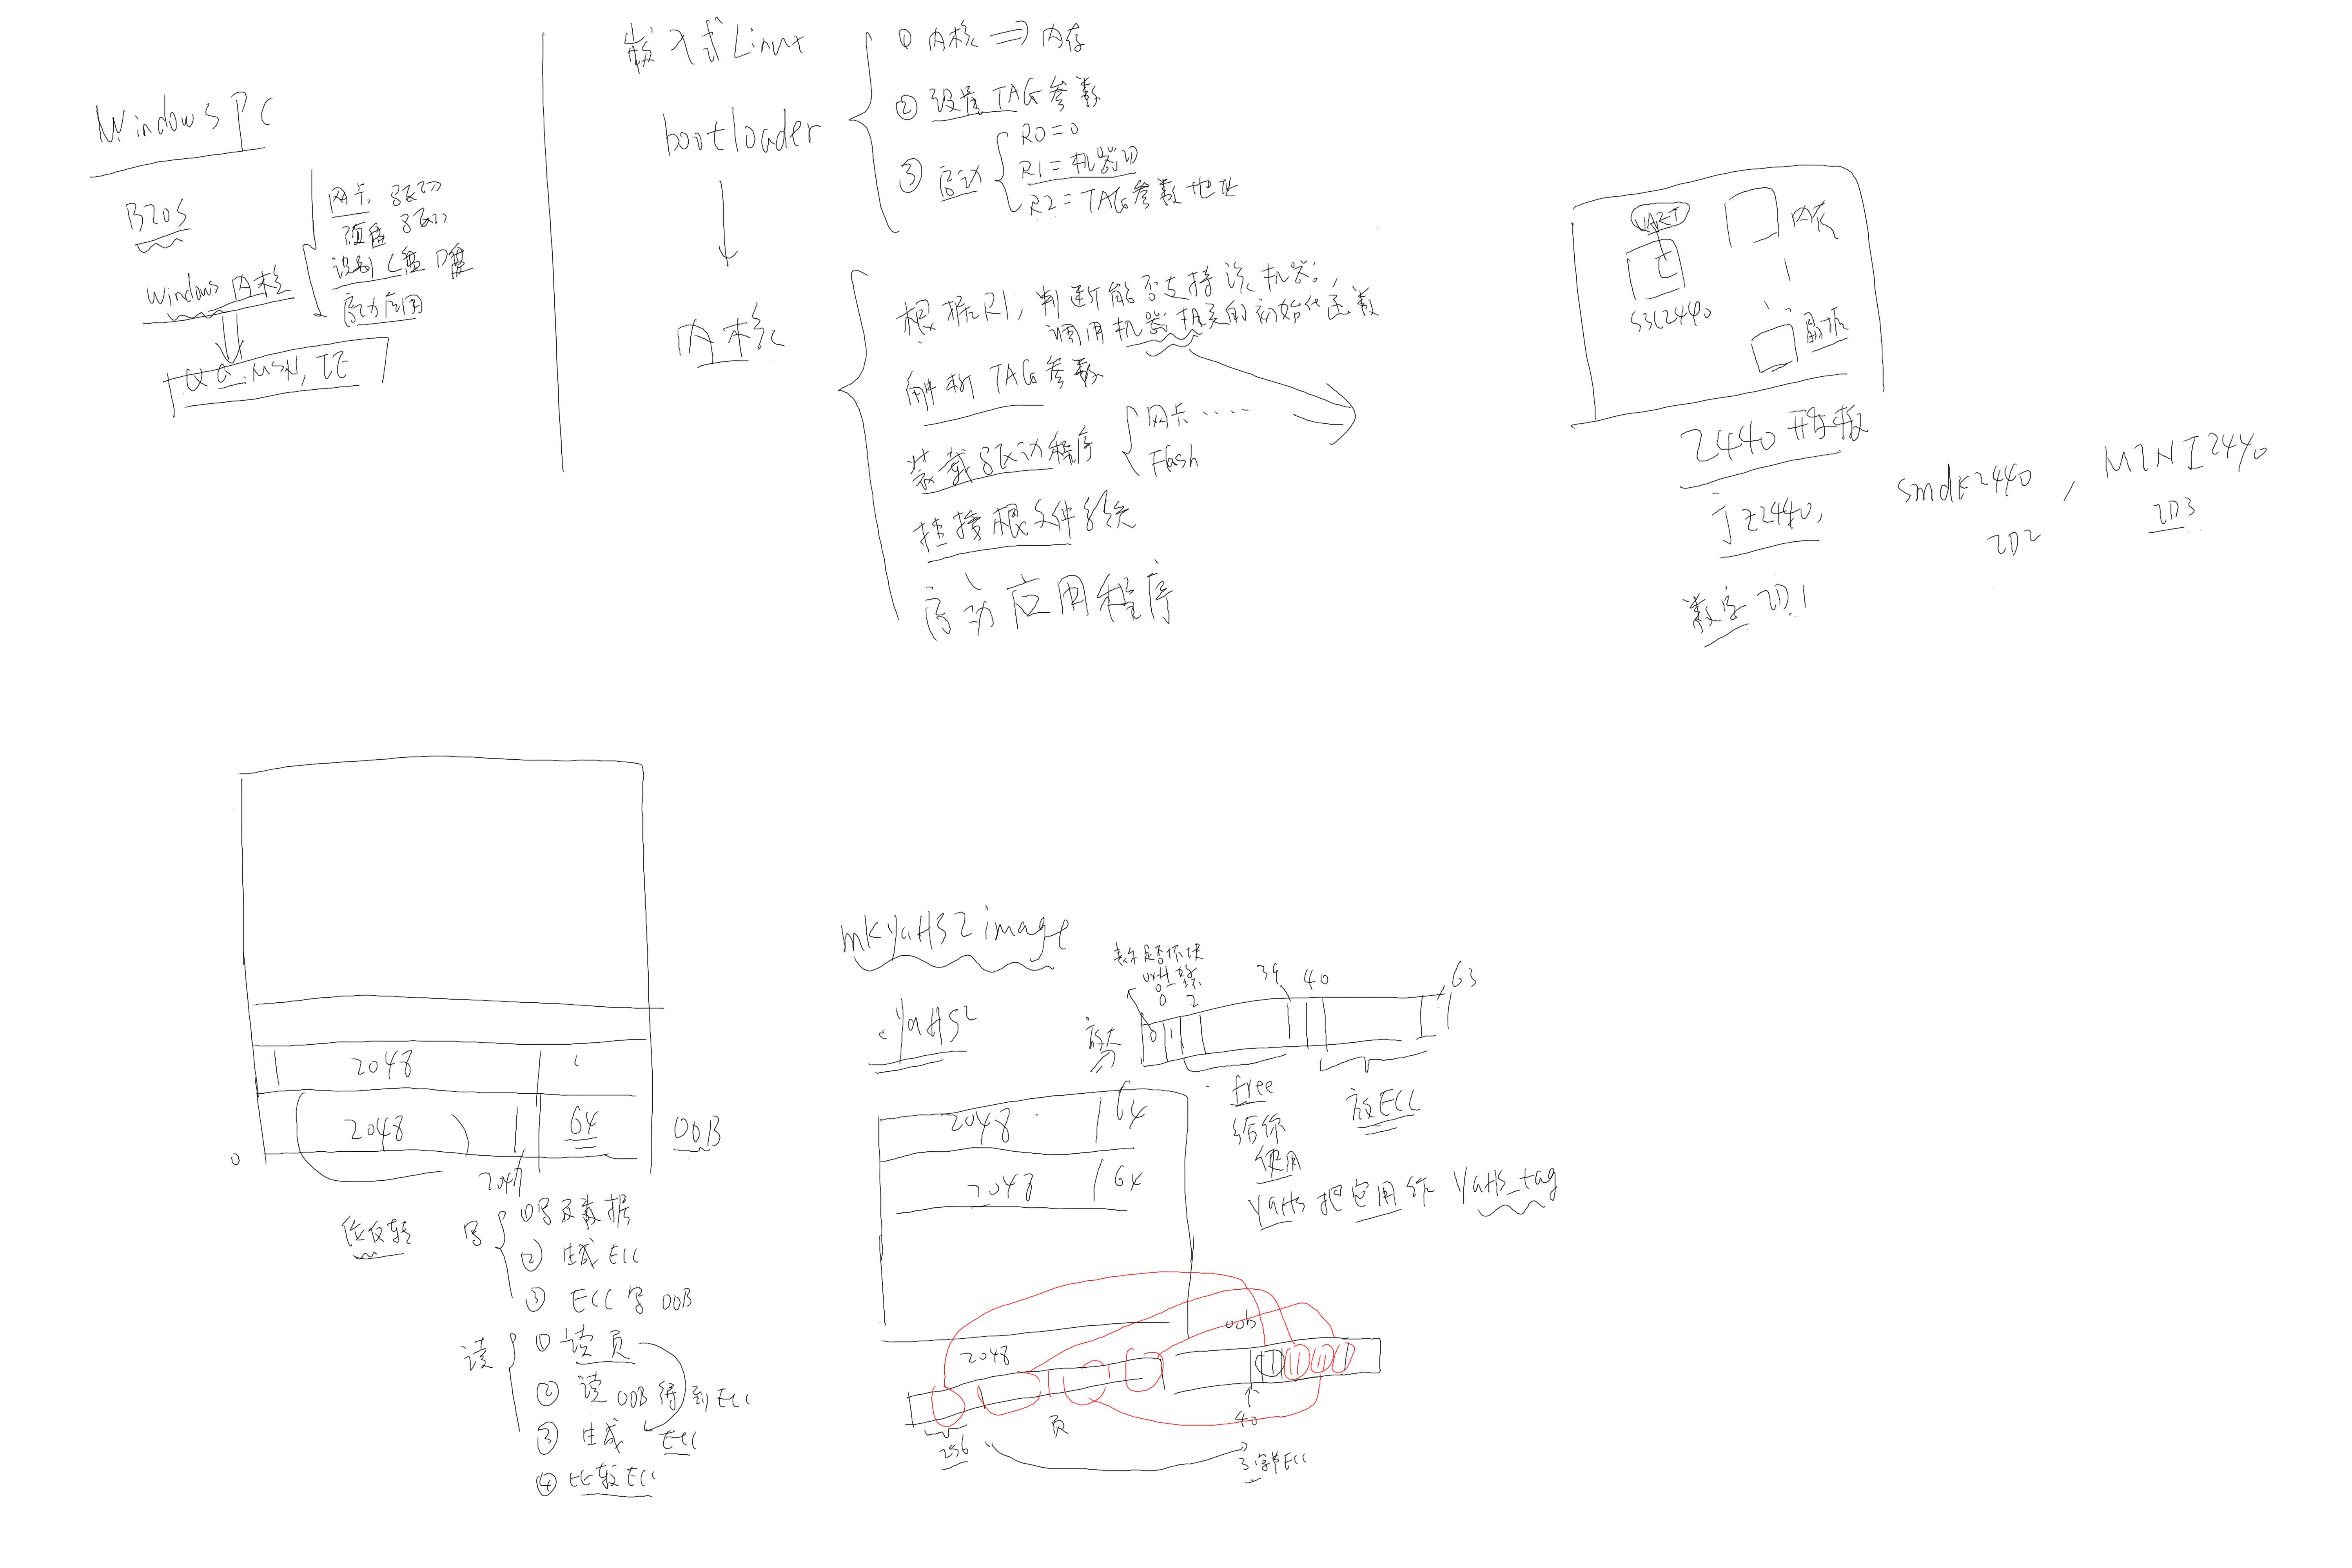 Windows PC
BIOS
windows 内核
网卡 驱动
硬盘 驱动
识别 C盘 D盘
启动应用
QQ, MSN, IE
嵌入式Linux
bootloader
① 内核 ⇒ 内存
② 设置 TAG参数
③ 启动
R0=0
R1=机器ID
R2=TAG参数地址
内核
根据R1, 判断能否支持该机器;
调用机器相关的初始化函数
解析 TAG参数
装载驱动程序
网卡 ....
Flash
挂接根文件系统
启动应用程序
UART
S3C2440
内存
晶振
2440 开发板
jz2440,
smdk2440 , MINI2440
ID2
ID3
数字 ID1
2048
2048
64
OOB
0
2047
位反转
写
①写页数据
② 生成 ECC
③ ECC写OOB
读
① 读页
② 读OOB得到ECC
③ 生成 ECC
④ 比较ECC
mkyaffs2image
.yaffs2
表示是否坏块
0xff 好
0 坏
0
2
39
40
63
放大
0
1
free
给你
使用
放ECC
yaffs 把它用作 yaffs_tag
2048
64
2048
64
oob
2048
页
40
256
3字节ECC